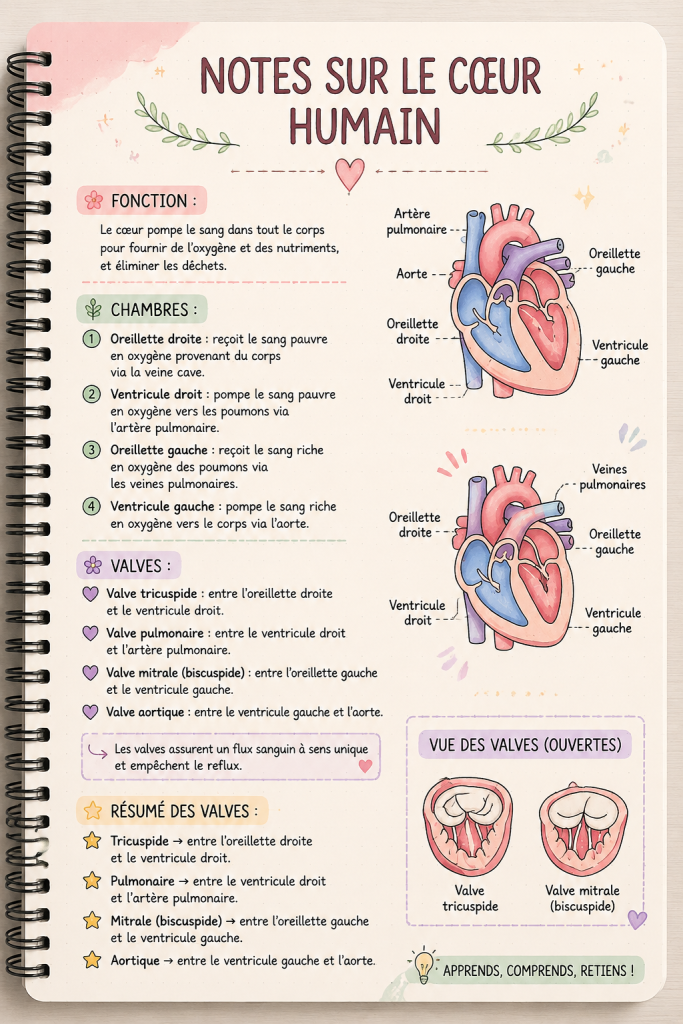 NOTES SUR LE CŒUR
HUMAIN
FONCTION :
Le cœur pompe le sang dans tout le corps
pour fournir de l'oxygène et des nutriments,
et éliminer les déchets.
CHAMBRES :
1 Oreillette droite : reçoit le sang pauvre
en oxygène provenant du corps
via la veine cave.
2 Ventricule droit : pompe le sang pauvre
en oxygène vers les poumons via
l'artère pulmonaire.
3 Oreillette gauche : reçoit le sang riche
en oxygène des poumons via
les veines pulmonaires.
4 Ventricule gauche : pompe le sang riche
en oxygène vers le corps via l'aorte.
VALVES :
Valve tricuspide : entre l'oreillette droite
et le ventricule droit.
Valve pulmonaire : entre le ventricule droit
et l'artère pulmonaire.
Valve mitrale (biscuspide) : entre l'oreillette gauche
et le ventricule gauche.
Valve aortique : entre le ventricule gauche et l'aorte.
Les valves assurent un flux sanguin à sens unique
et empêchent le reflux.
RÉSUMÉ DES VALVES :
Tricuspide → entre l'oreillette droite
et le ventricule droit.
Pulmonaire → entre le ventricule droit
et l'artère pulmonaire.
Mitrale (biscuspide) → entre l'oreillette gauche
et le ventricule gauche.
Aortique → entre le ventricule gauche et l'aorte.
Artère
pulmonaire
Aorte
Oreillette
droite
Ventricule
droit
Oreillette
gauche
Ventricule
gauche
Veines
pulmonaires
Oreillette
droite
Oreillette
gauche
Ventricule
droit
Ventricule
gauche
VUE DES VALVES (OUVERTES)
Valve
tricuspide
Valve mitrale
(biscuspide)
APPRENDS, COMPRENDS, RETIENS !